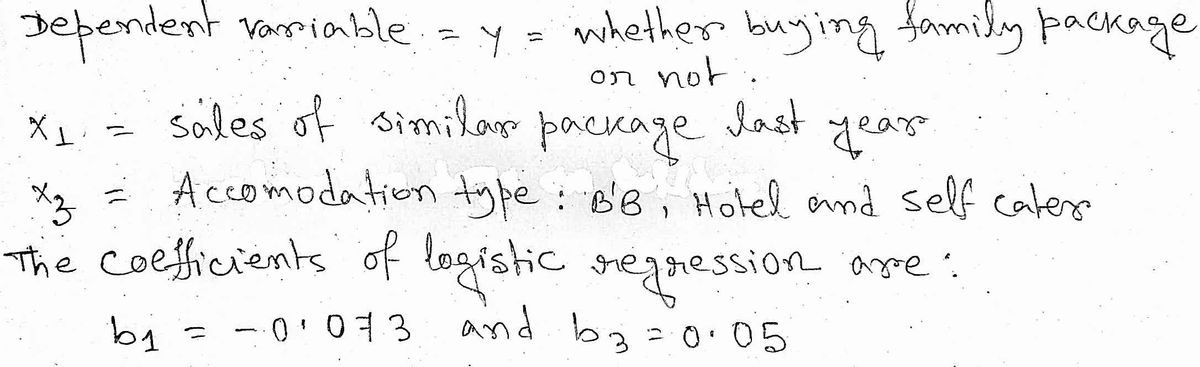 Dependent variable = y = whether buying family package
or not.
x1 = sales of similar package last year
x3 = Accomodation type : B'B, Hotel and self cater
The coefficients of logistic regression are :
b1 = -0.073 and b3 = 0.05